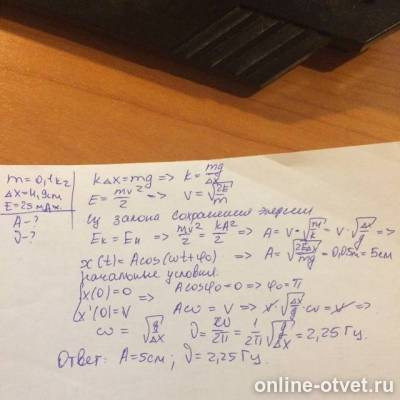 m = 0,1 кг
Δx = 4,9см
E = 25 мДж.
A - ?
ν - ?
kΔx = mg => k = mg/Δx
E = mv²/2 => v = √(2E/m)
Из закона сохранения энергии
Eк = Eп => mv²/2 = kA²/2 => A = v√(m/k) = v·√(Δx/g) =>
=> A = √(2EΔx/mg) = 0,05м = 5см
x(t) = Acos(ωt+φ₀)
начальные условия.
x(0) = 0 => Acosφ₀ = 0 => φ₀ = π
x'(0) = v Aω = v => v·√(Δx/g)·ω = v =>
ω = √(g/Δx) ν = ω/2π = 1/2π √(g/Δx) = 2,25 Гц.
Ответ: A = 5см; ν = 2,25 Гц.
online-otvet.ru